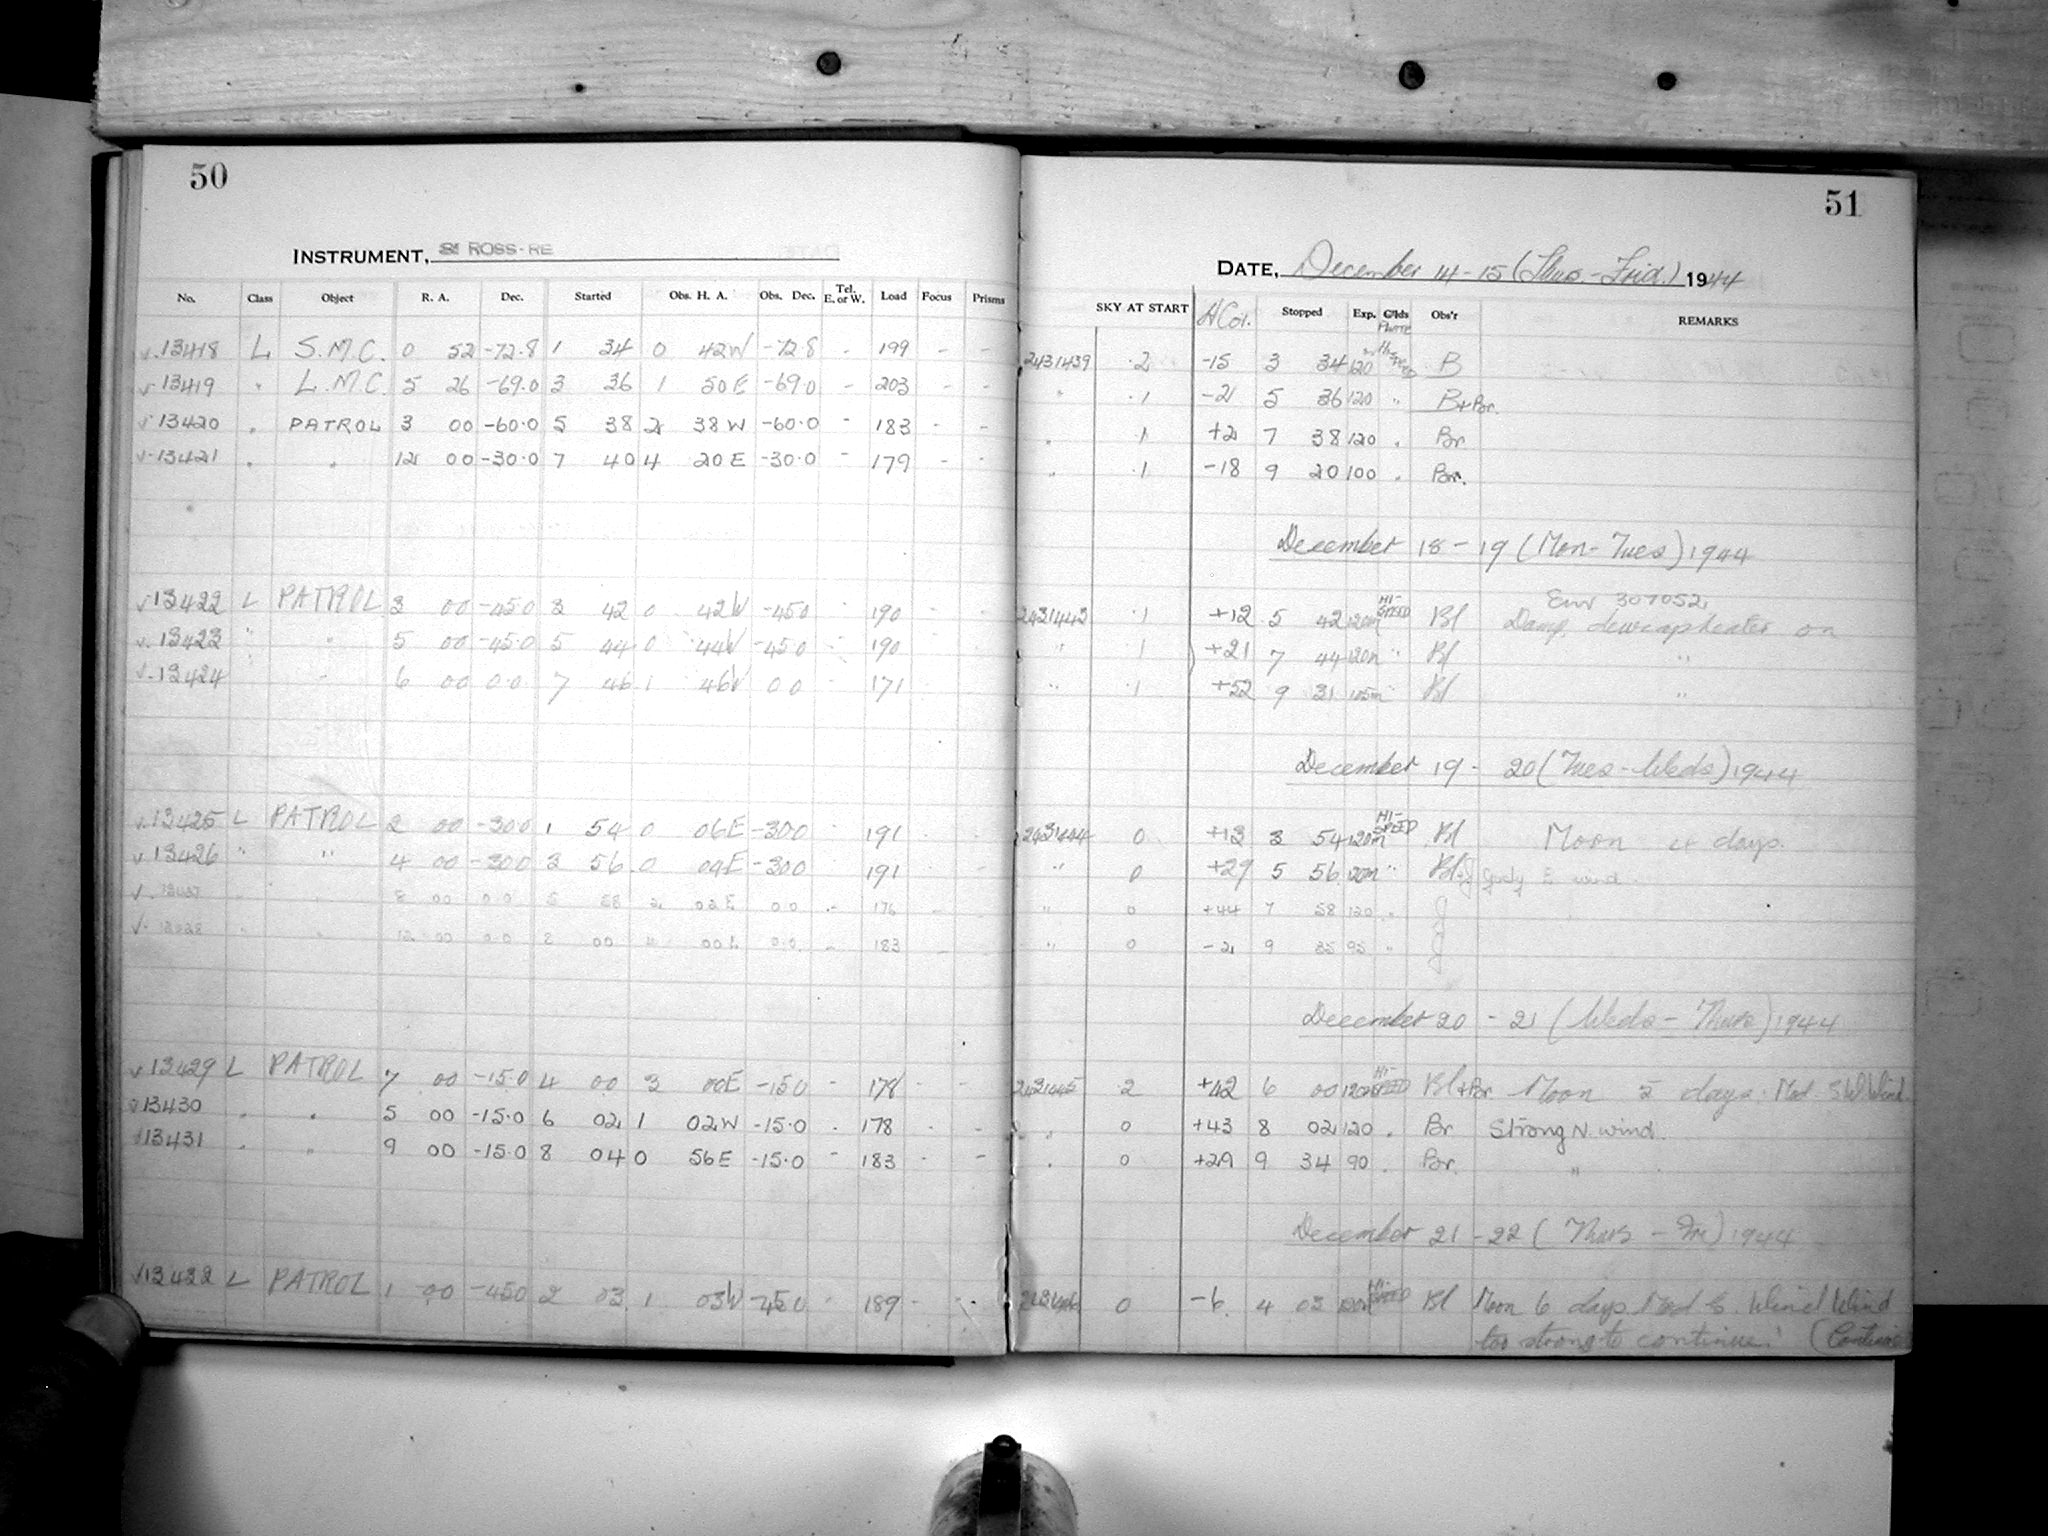 50
INSTRUMENT, ROSS-RE
No. Class Object R. A. Dec. Started Obs. H. A. Obs. Dec. Tel. E. or W. Load Focus Prisms
13418 L S.M.C. 0 52 -72.8 1 34 0 42W -72.8 - 199 - -
13419 " L.M.C. 5 26 -69.0 3 36 1 50E -69.0 - 203 - -
13420 " PATROL 3 00 -60.0 5 38 2 38W -60.0 - 183 - -
13421 " " 12 00 -30.0 7 40 4 20E -30.0 - 179 - -
13422 L PATROL 3 00 -45.0 3 42 0 42W -45.0 - 190 - -
13423 " " 5 00 -45.0 5 44 0 44W -45.0 - 190 - -
13424 " " 6 00 0.0 7 46 1 46W 0.0 - 171 - -
13425 L PATROL 2 00 -30.0 1 54 0 06E -30.0 - 191 - -
13426 " " 4 00 -30.0 3 56 0 09E -30.0 - 191 - -
8 00 0.0 5 58 2 02E 0.0 - 176 - -
12 00 0.0 8 00 0.0 - 183 - -
13429 L PATROL 7 00 -15.0 4 00 3 00E -15.0 - 178 - -
13430 " " 5 00 -15.0 6 02 1 02W -15.0 - 178 - -
13431 " " 9 00 -15.0 8 04 0 56E -15.0 - 183 - -
13432 L PATROL 1 00 -45.0 2 03 1 03W -45.0 - 189 - -
51
DATE, December 14-15 (Thus.-Frid.) 1944
SKY AT START Stopped Exp. Obs'r REMARKS
2431439 .2 -15 3 34 120 B
" .1 -21 5 36 120 " B+Br.
" .1 +2 7 38 120 " Br
" .1 -18 9 20 100 " Br.
December 18-19 (Mon-Tues) 1944
2431443 .1 +12 5 42 120m HI-SPEED Bl Damp, dewcap heater on
" .1 +21 7 44 120m " Bl "
" .1 +52 9 31 105m " Bl "
December 19-20 (Tues-Weds) 1944
2431444 0 +13 3 54 120m HI-SPEED Bl Moon 4 days.
" 0 +29 5 56 120m " E wind.
" 0 +44 7 58 120 " J
" 0 -2 9 35 95 " J
December 20-21 (Weds-Thurs) 1944
2431445 .2 +42 6 00 120m HI-SPEED Bl+Br Moon 5 days. Mod. SW Wind.
" 0 +43 8 02 120 " Br Strong N. wind.
" 0 +29 9 34 90 " Br. "
December 21-22 (Thurs-Fri) 1944
0 -6 4 03 120m HI-SPEED Bl Moon 6 days. Mod S. Wind Wind
too strong to continue.